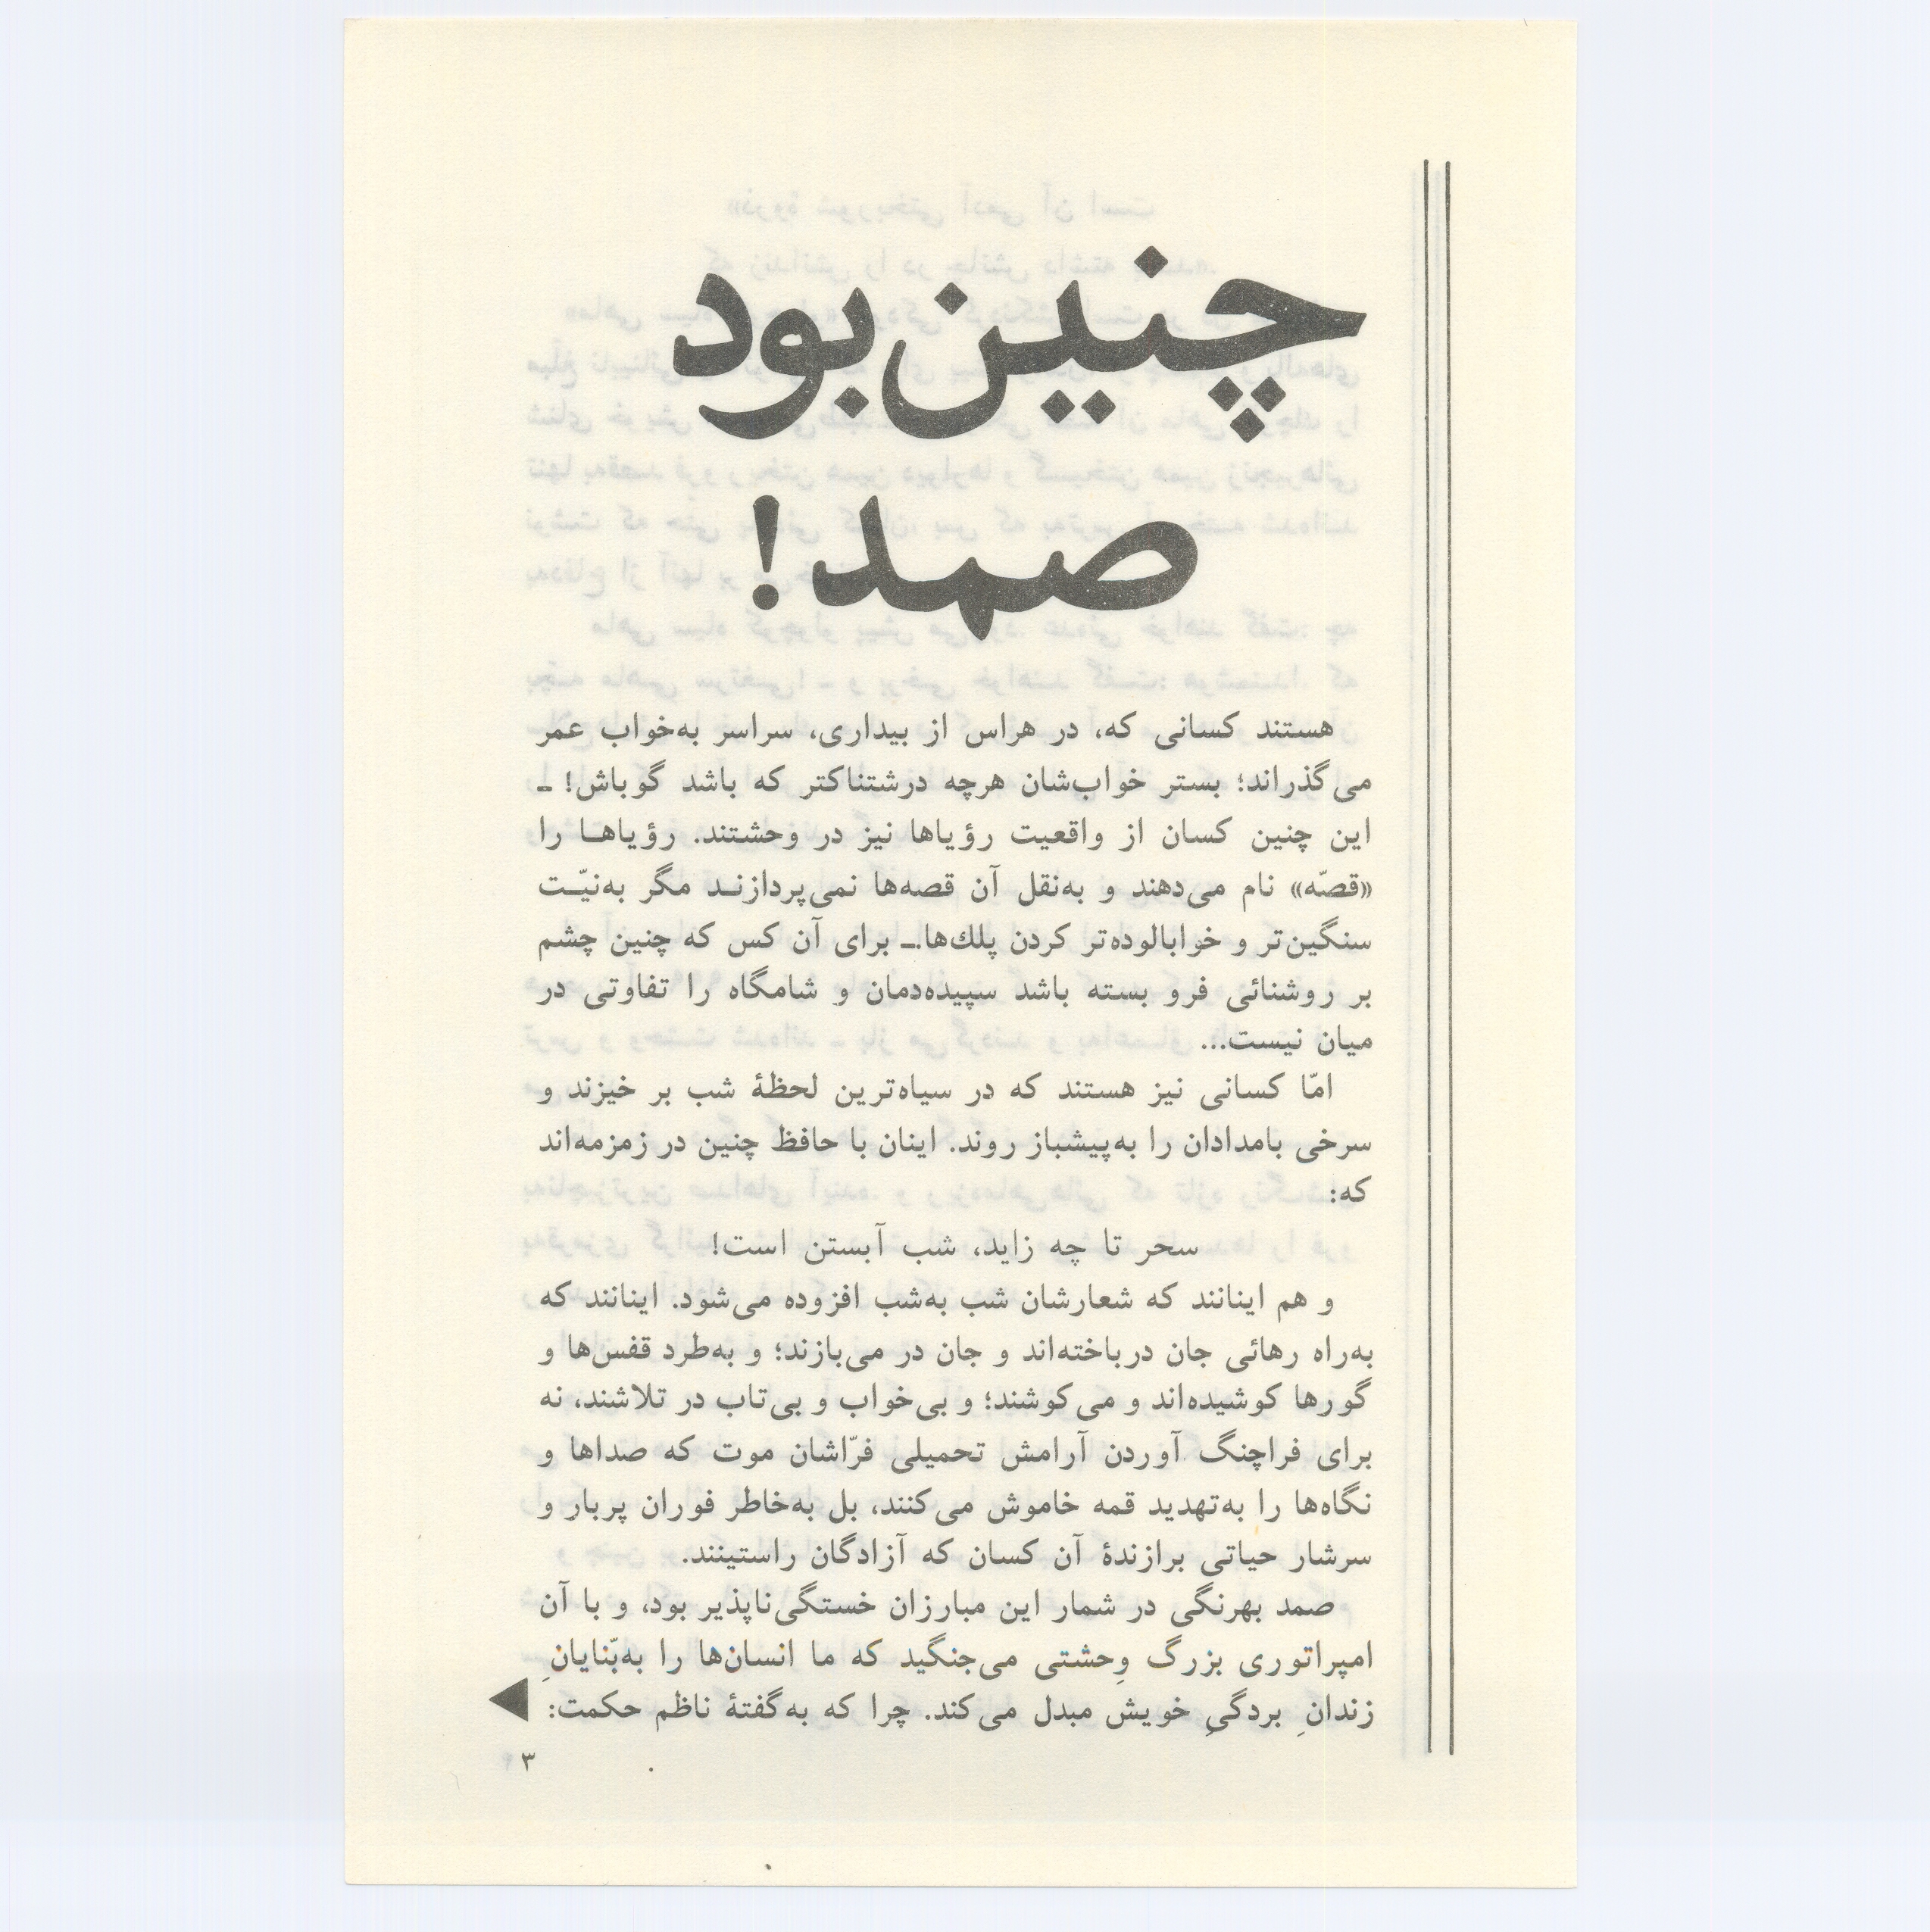 چنین‌بود
صمد!
هستند کسانی که، در هراس از بیداری، سراسر به‌خواب عمر
می‌گذراند؛ بستر خواب‌شان هرچه درشتناکتر که باشد گوباش! ـ
این چنین کسان از واقعیت رؤیاها نیز در وحشتند. رؤیاهـا را
«قصّه» نام می‌دهند و به‌نقل آن قصه‌ها نمی‌پردازنـد مگر به‌نیّـت
سنگین‌تر و خوابالوده‌تر کردن پلك‌ها.ـ برای آن کس که چنین چشم
بر روشنائی فرو بسته باشد سپیده‌دمان و شامگاه را تفاوتی در
میان نیست...
امّا کسانی نیز هستند که در سیاه‌ترین لحظهٔ شب بر خیزند و
سرخی بامدادان را به‌پیشباز روند. اینان با حافظ چنین در زمزمه‌اند
که:
سحر تا چه زاید، شب آبستن است!
و هم اینانند که شعارشان شب به‌شب افزوده می‌شود. اینانند که
به‌راه رهائی جان درباخته‌اند و جان در می‌بازند؛ و به‌طرد قفس‌ها و
گورها کوشیده‌اند و می‌کوشند؛ و بی‌خواب و بی‌تاب در تلاشند، نه
برای فراچنگ آوردن آرامش تحمیلی فرّاشان موت که صداها و
نگاه‌ها را به‌تهدید قمه خاموش می‌کنند، بل به‌خاطر فوران پربار و
سرشار حیاتی برازندهٔ آن کسان که آزادگان راستینند.
صمد بهرنگی در شمار این مبارزان خستگی‌ناپذیر بود، و با آن
امپراتوری بزرگ وِحشتی می‌جنگید که ما انسان‌ها را به‌بّنایانِ
زندانِ بردگیِ خویش مبدل می‌کند. چرا که به‌گفتهٔ ناظم حکمت:
۳